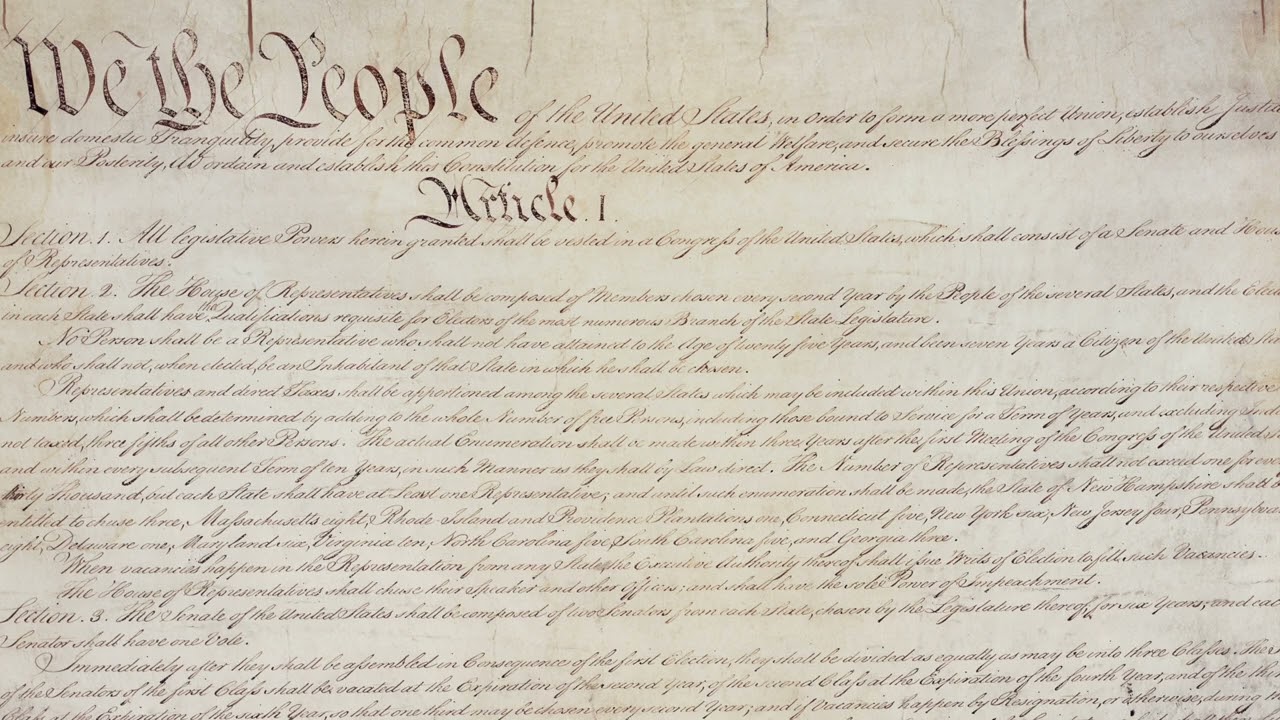 We the People of the United States, in Order to form a more perfect Union, establish Justice
insure domestic Tranquility, provide for the common defence, promote the general Welfare, and secure the Blessings of Liberty to ourselves
and our Posterity, do ordain and establish this Constitution for the United States of America.
Article. I.
Section. 1. All legislative Powers herein granted shall be vested in a Congress of the United States, which shall consist of a Senate and Hous
of Representatives.
Section. 2. The House of Representatives shall be composed of Members chosen every second Year by the People of the several States, and the Elect
in each State shall have the Qualifications requisite for Electors of the most numerous Branch of the State Legislature.
No Person shall be a Representative who shall not have attained to the Age of twenty five Years, and been seven Years a Citizen of the United Stat
and who shall not, when elected, be an Inhabitant of that State in which he shall be chosen.
Representatives and direct Taxes shall be apportioned among the several States which may be included within this Union, according to their respective
Numbers, which shall be determined by adding to the whole Number of free Persons, including those bound to Service for a Term of Years, and excluding Indi
not taxed, three fifths of all other Persons. The actual Enumeration shall be made within three Years after the first Meeting of the Congress of the United
and within every subsequent Term of ten Years, in such Manner as they shall by Law direct. The Number of Representatives shall not exceed one for eve
thirty Thousand, but each State shall have at Least one Representative; and until such enumeration shall be made, the State of New Hampshire shall b
entitled to chuse three, Massachusetts eight, Rhode Island and Providence Plantations one, Connecticut five, New York six, New Jersey four, Pennsylva
eight, Delaware one, Maryland six, Virginia ten, North Carolina five, South Carolina five, and Georgia three.
When vacancies happen in the Representation from any State, the Executive Authority thereof shall issue Writs of Election to fill such Vacancies.
The House of Representatives shall chuse their Speaker and other Officers; and shall have the sole Power of Impeachment.
Section. 3. The Senate of the United States shall be composed of two Senators from each State, chosen by the Legislature thereof, for six Years; and eac
Senator shall have one Vote.
Immediately after they shall be assembled in Consequence of the first Election, they shall be divided as equally as may be into three Classes. The
of the Senators of the first Class shall be vacated at the Expiration of the second Year, of the second Class at the Expiration of the fourth Year, and of the thi
Class at the Expiration of the sixth Year, so that one third may be chosen every second Year; and if Vacancies happen by Resignation, or otherwise, during th